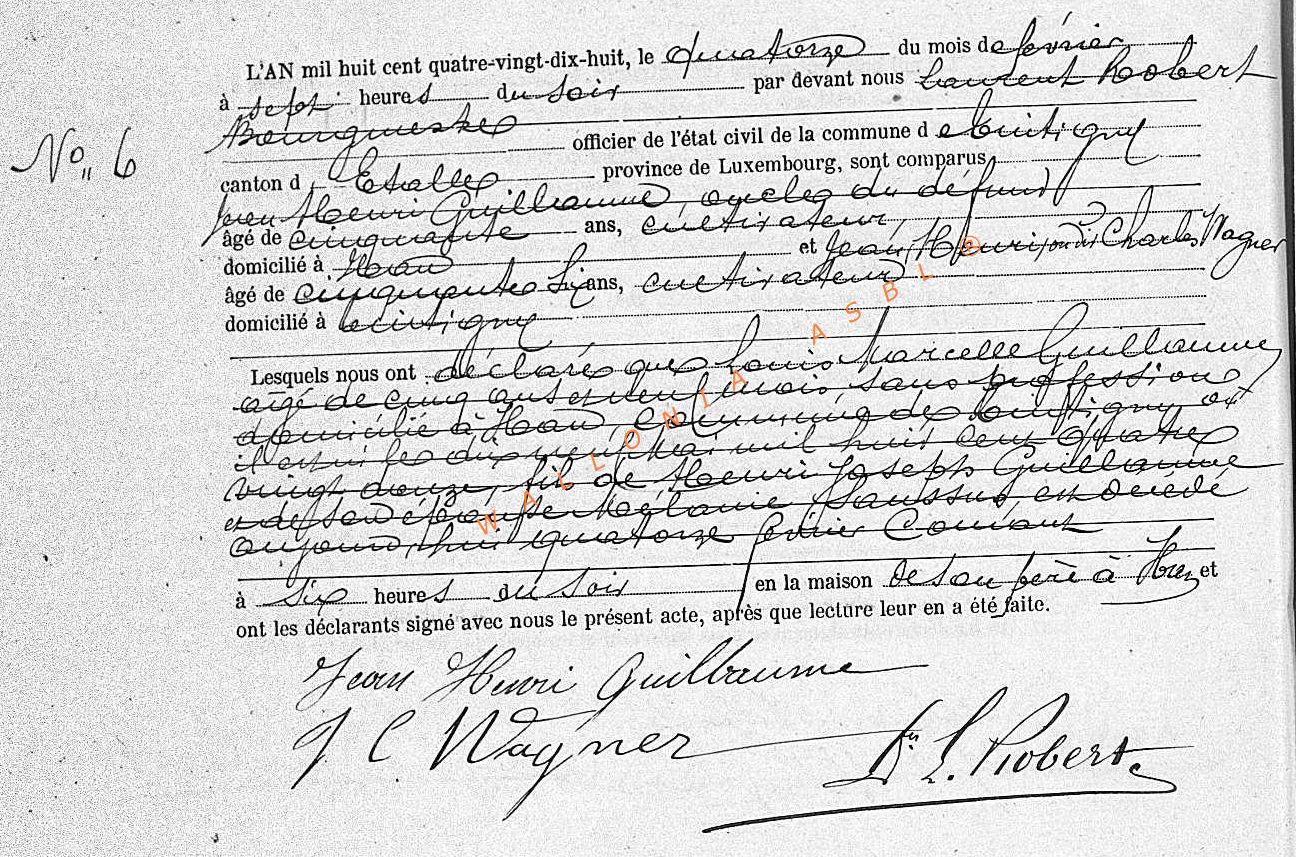 L'AN mil huit cent quatre-vingt-dix-huit, le quatorze du mois de février
à sept heures du soir par devant nous Laurent Robert
Bourgmestre officier de l'état civil de la commune de Tintigny
No 6
canton d'Etalle province de Luxembourg, sont comparus,
Jean Henri Guillaume, oncle du défunt
âgé de cinquante ans, cultivateur,
domicilié à Han et Jean Henri, ou dit Charles Wagner
âgé de cinquante six ans, cultivateur
domicilié à Tintigny
Lesquels nous ont déclaré que Louis Marcelle Guillaume
âgé de cinq ans et neuf mois, sans profession
domicilié à Han, commune de Tintigny où
il est né le dix neuf Mai mil huit cent quatre
vingt douze, fils de Henri Joseph Guillaume
et de son épouse Mélanie Saussus est décédé
aujourd'hui quatorze février Courant
à six heures du soir en la maison de son père à Han et
ont les déclarants signé avec nous le présent acte, après que lecture leur en a été faite.
Jean Henri Guillaume
J C Wagner
Dr L. Robert.
WALLONIA ASBL ©